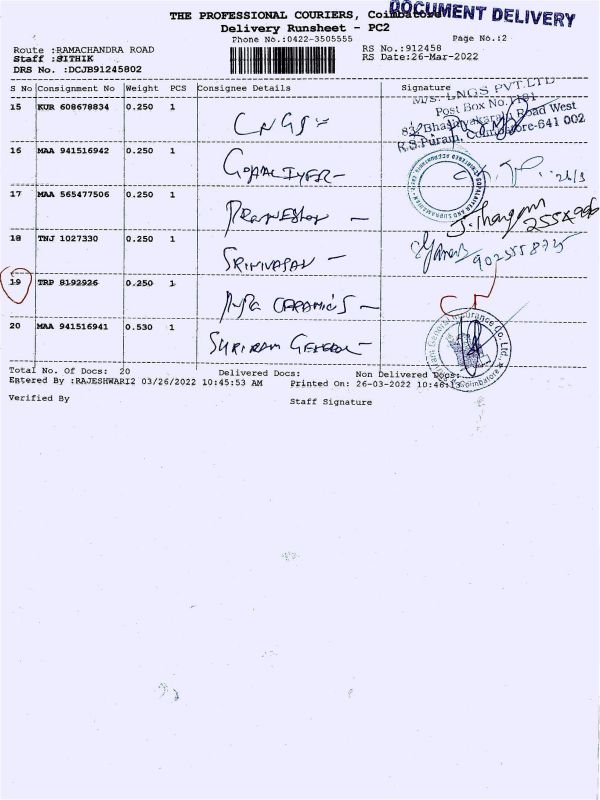 DOCUMENT DELIVERY
THE PROFESSIONAL COURIERS, Coimbatore
Delivery Runsheet - PC2
Phone No.:0422-3505555 Page No.:2
Route :RAMACHANDRA ROAD RS No.:912458
Staff :SITHIK RS Date:26-Mar-2022
DRS No. :DCJB91245802
S No Consignment No Weight PCS Consignee Details Signature
M/s. LNGS PVT.LTD
Post Box No.1101
83, Bhashyakaralu Road West
R.S.Puram, Coimbatore-641 002
15 KUR 608678834 0.250 1
16 MAA 941516942 0.250 1 GOPAL IYER
26/3
17 MAA 565477506 0.250 1
J. Thangam
18 TNJ 1027330 0.250 1 SRINIVASAN
19 TRP 8192926 0.250 1 CERAMICS
20 MAA 941516941 0.530 1 SHRIRAM GENERAL
General Insurance Co. Ltd.
Coimbatore
Total No. Of Docs: 20 Delivered Docs: Non Delivered Docs:
Entered By :RAJESHWARI2 03/26/2022 10:45:53 AM Printed On: 26-03-2022 10:46:13
Verified By Staff Signature